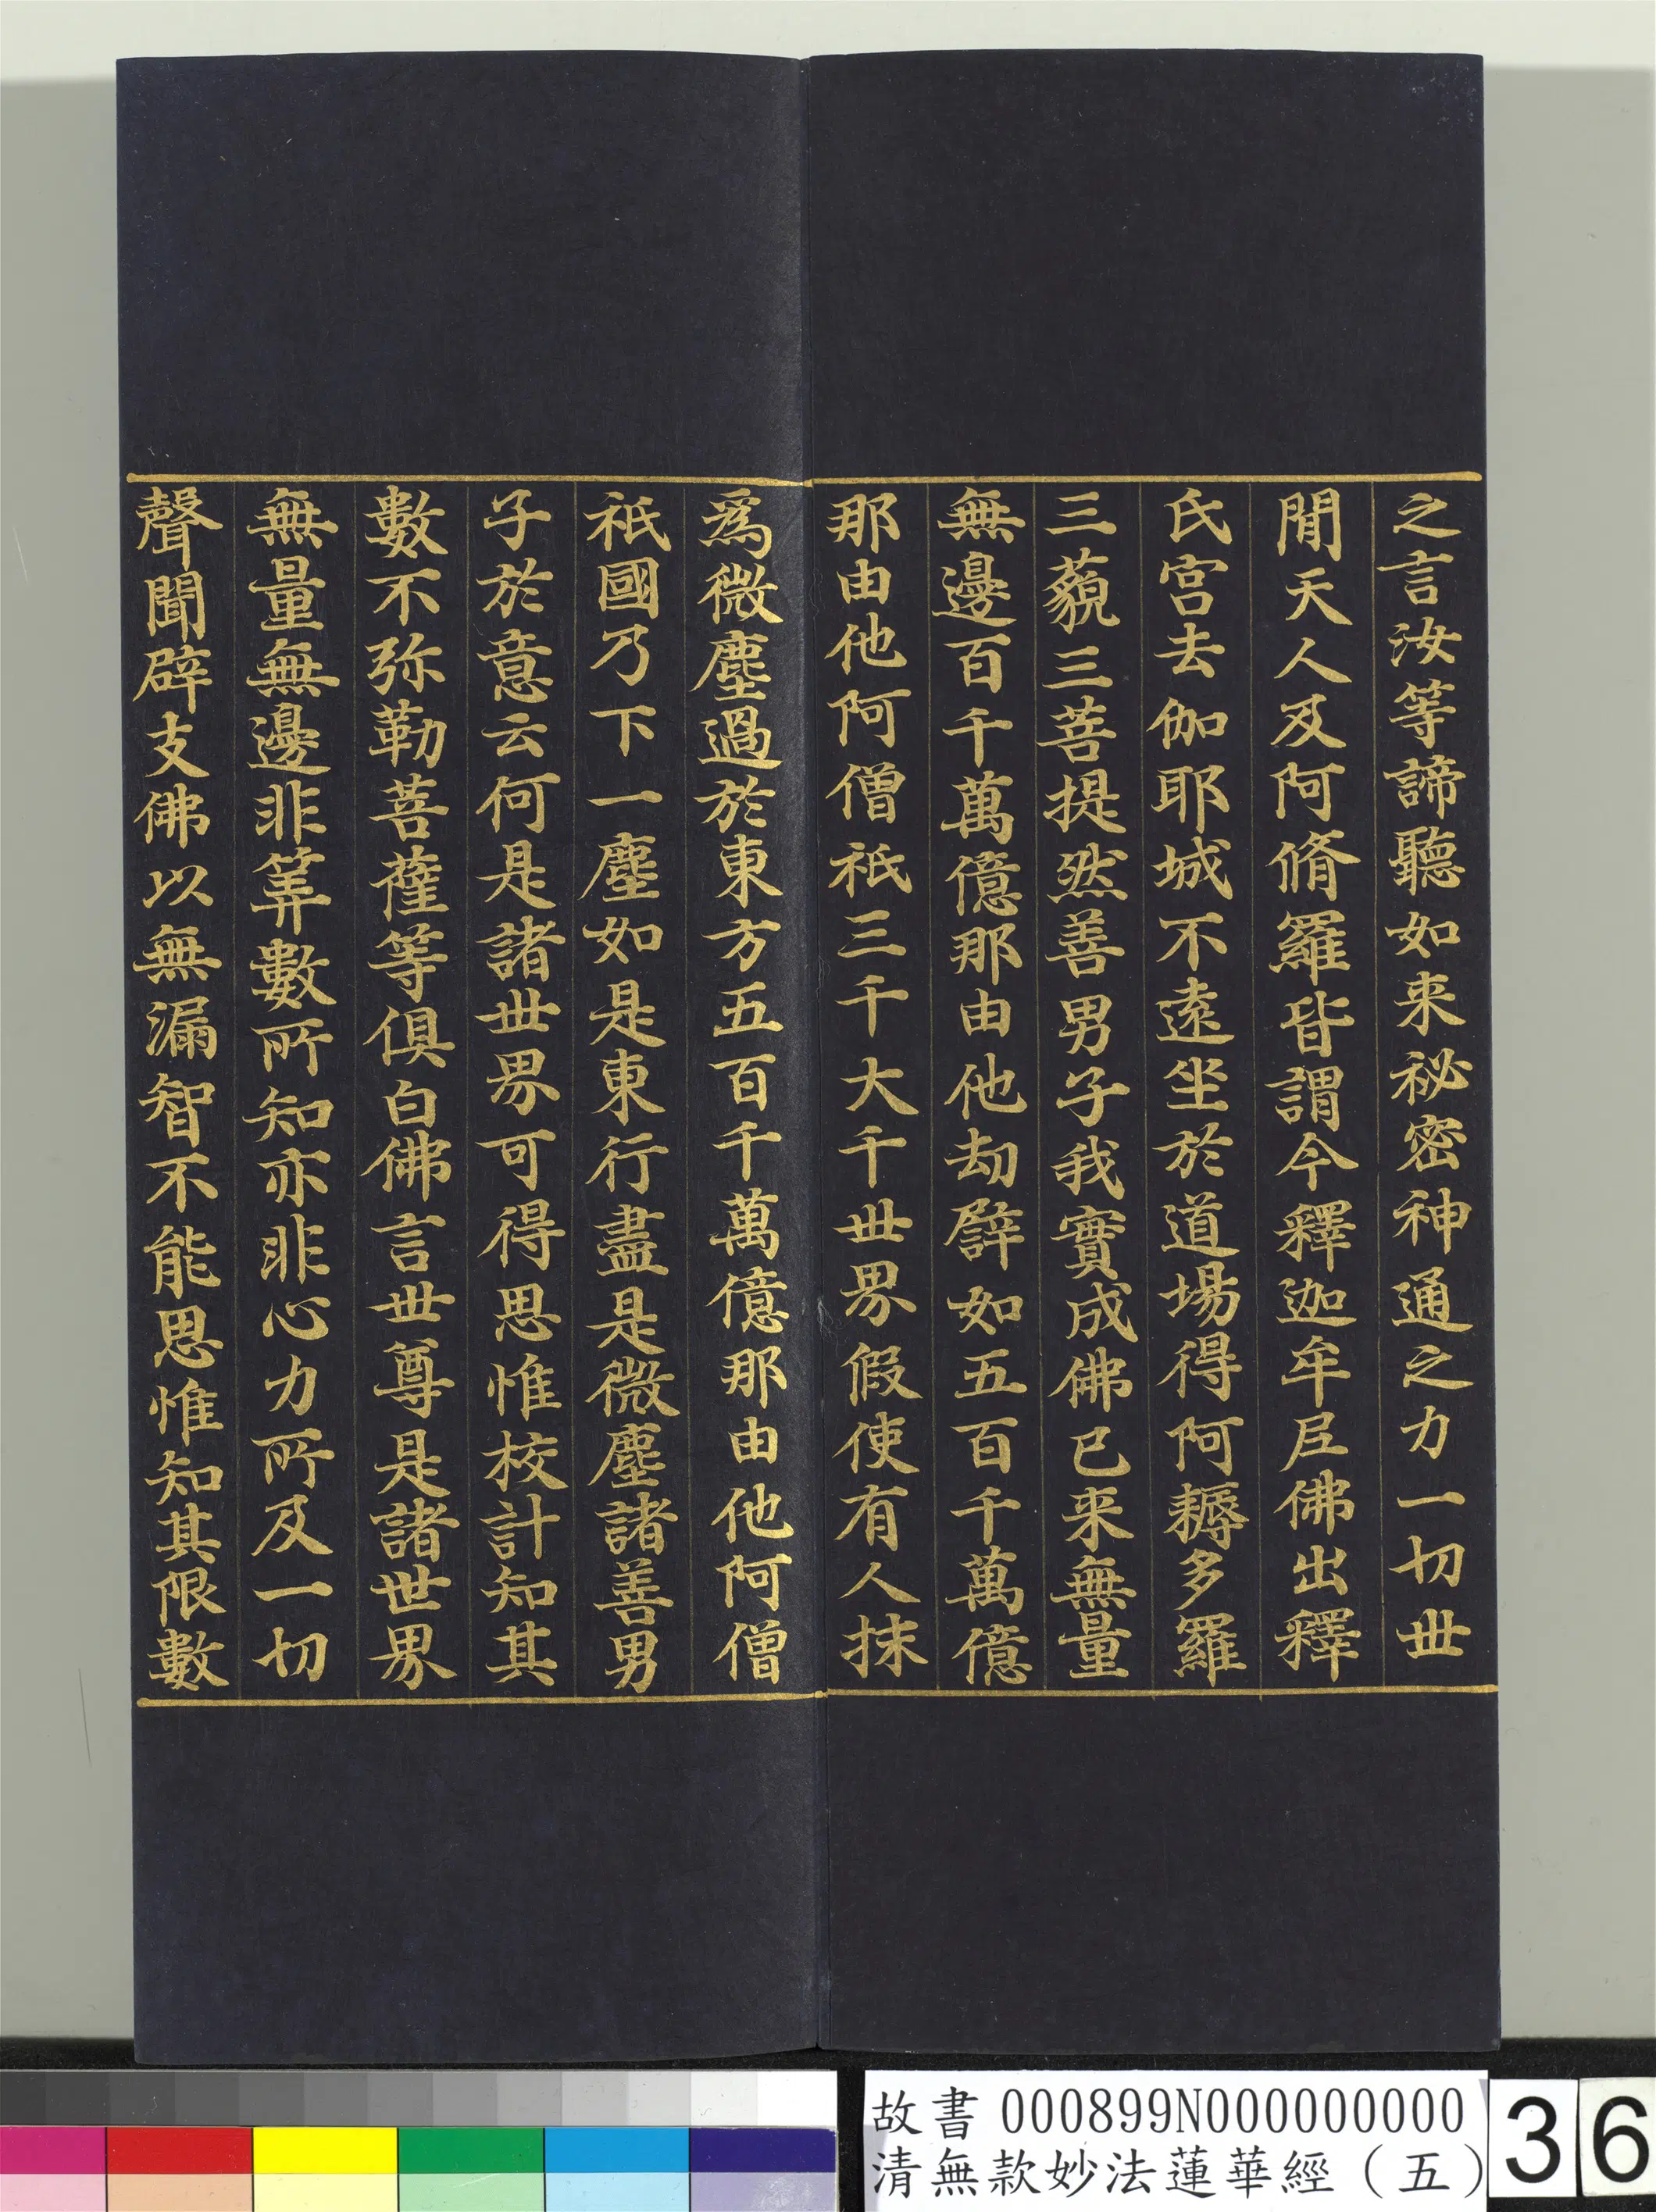 之言汝等諦聽如来秘密神通之力一切世
間天人及阿脩羅皆謂今釋迦牟尼佛出釋
氏宫去伽耶城不遠坐於道場得阿耨多羅
三藐三菩提然善男子我實成佛已来無量
無邊百千萬億那由他劫譬如五百千萬億
那由他阿僧祇三千大千世界假使有人抹
為微塵過於東方五百千萬億那由他阿僧
祇國乃下一塵如是東行盡是微塵諸善男
子於意云何是諸世界可得思惟校計知其
數不弥勒菩薩等俱白佛言世尊是諸世界
無量無邊非筭數所知亦非心力所及一切
聲聞辟支佛以無漏智不能思惟知其限數
故書 000899N000000000
清無款妙法蓮華經（五）
36